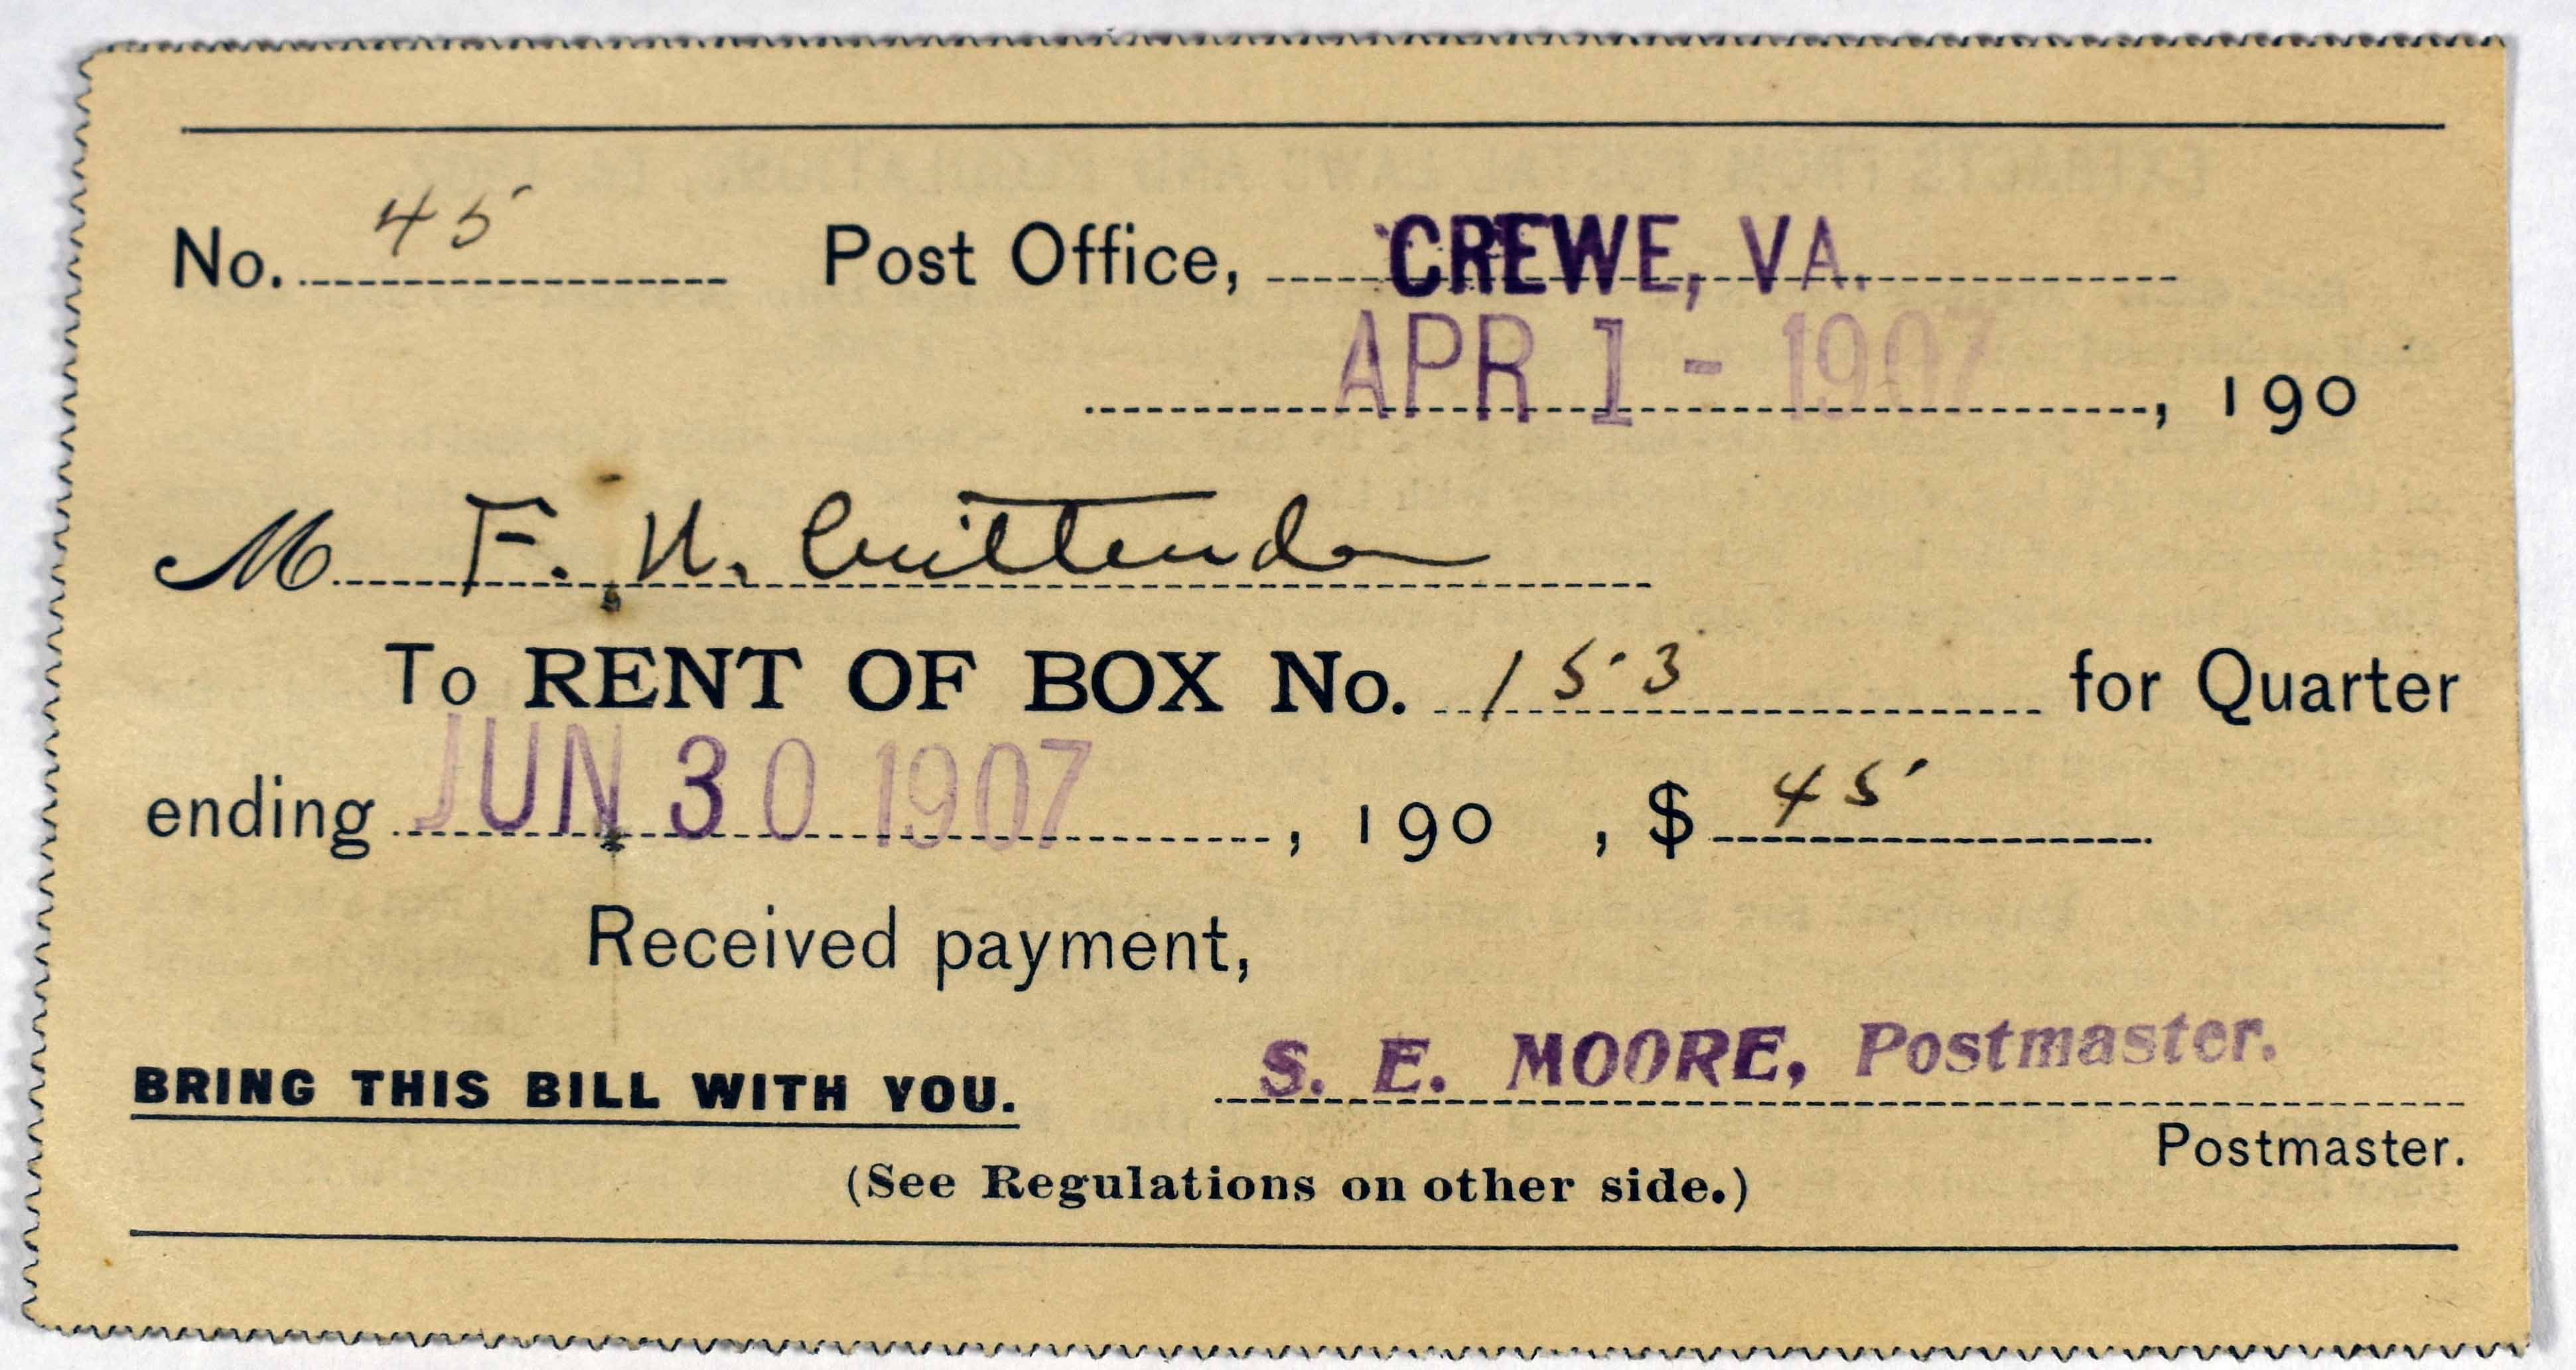 No. 45 Post Office, CREWE, VA.
APR 1 - 1907, 190
M F. H. Crittenden
To RENT OF BOX No. 153 for Quarter
ending JUN 30 1907, 190 , $ 45
Received payment,
BRING THIS BILL WITH YOU. S. E. MOORE, Postmaster.
Postmaster.
(See Regulations on other side.)